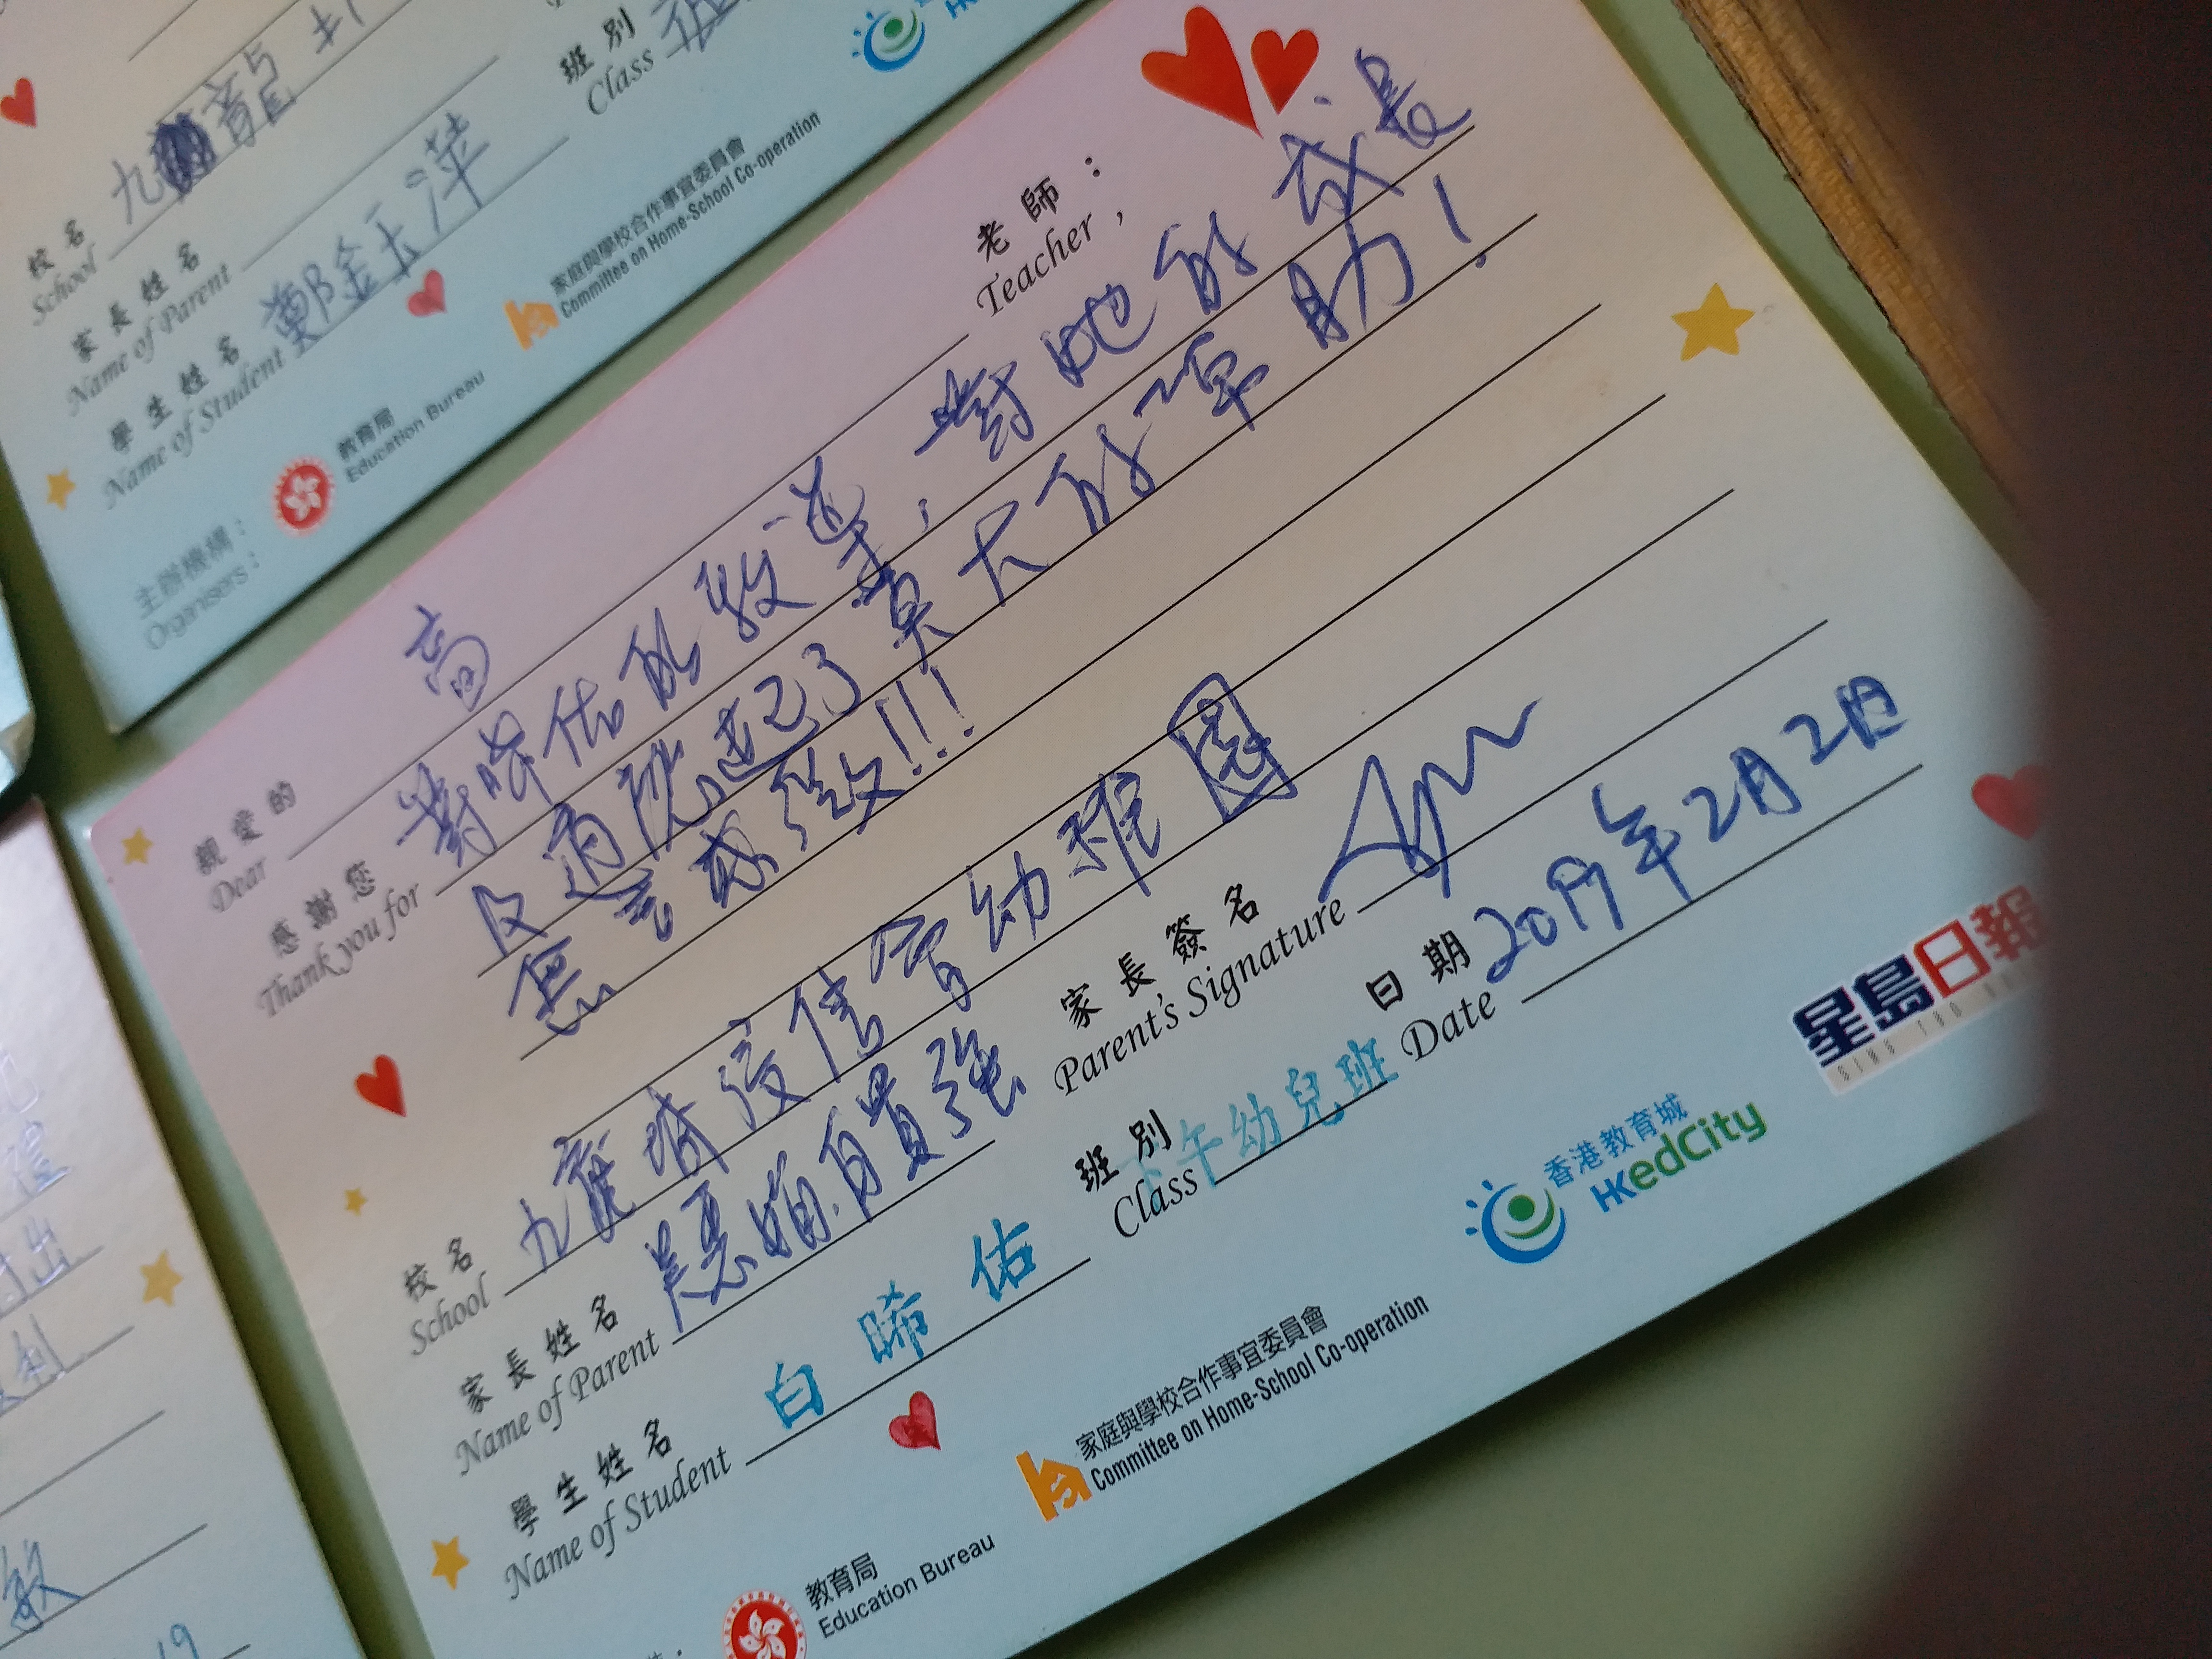 校名 九龍
School
家長姓名
Name of Parent
學生姓名 鄭金玉萍
Name of Student
班別
Class
主辦機構：
Organisers：
教育局
Education Bureau
家庭與學校合作事宜委員會
Committee on Home-School Co-operation
親愛的 高 老師：
Dear Teacher,
感謝您 對晞佑的教導，對她的成長
Thank you for
及適應起了莫大的幫助！
無言感激!!!
校名 九龍城浸信會幼稚園
School
家長姓名
Name of Parent
家長簽名
Parent's Signature
學生姓名 白晞佑
Name of Student
班別 下午幼兒班
Class
日期 2019年2月2日
Date
教育局
Education Bureau
家庭與學校合作事宜委員會
Committee on Home-School Co-operation
香港教育城
HKedCity
星島日報
出
敏
19